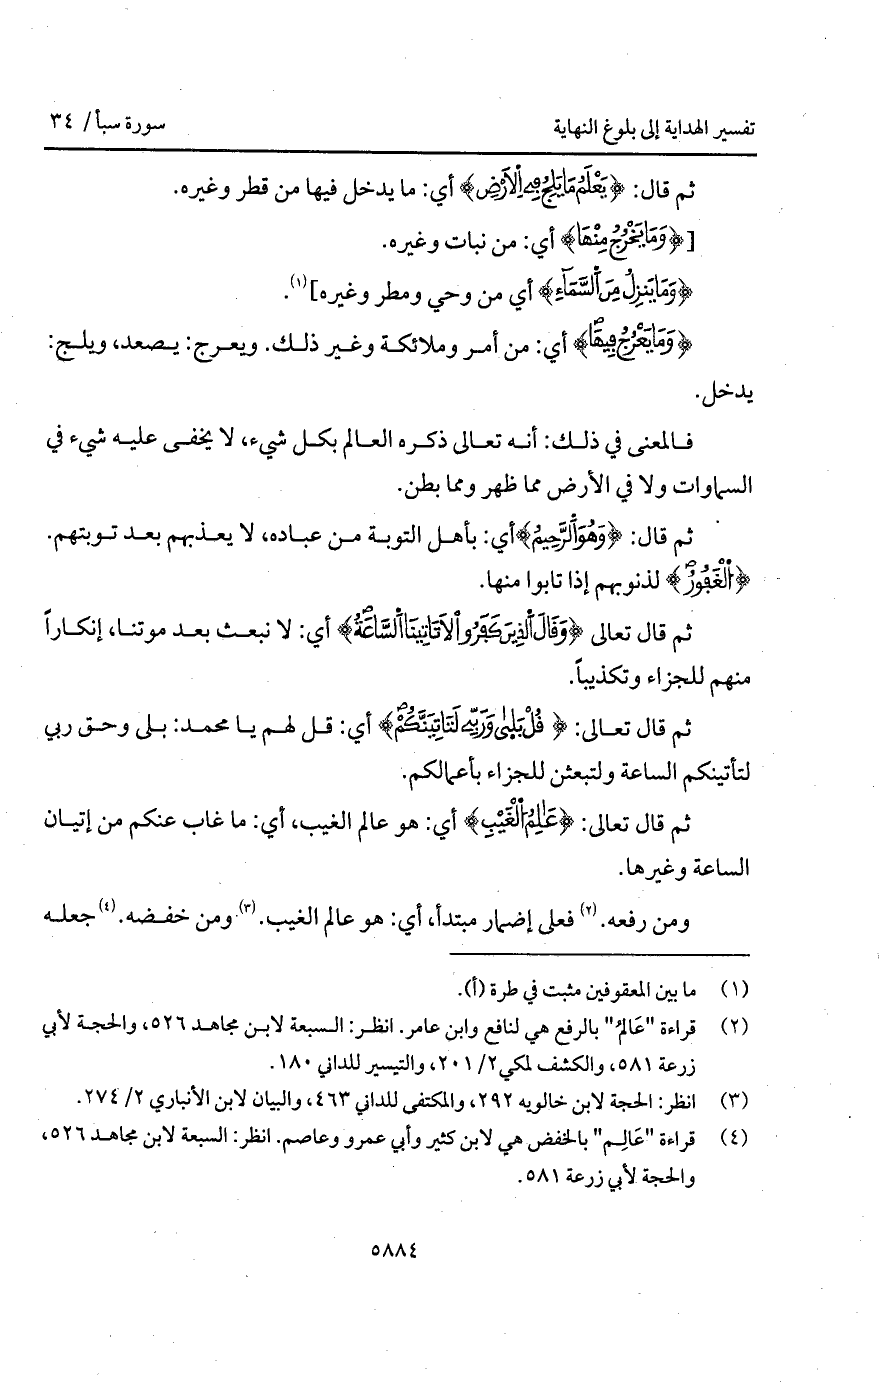 تفسير الهداية إلى بلوغ النهاية
سورة سبأ / ٣٤
ثم قال: ﴿يَعْلَمُ مَا يَلِجُ فِي اِلْأَرْضِ﴾ أي: ما يدخل فيها من قطر وغيره.
[﴿وَمَا يَخْرُجُ مِنْهَا﴾ أي: من نبات وغيره.
﴿وَمَا يَنزِلُ مِنَ اَلسَّمَآءِ﴾ أي من وحي ومطر وغيره](١).
﴿وَمَا يَعْرُجُ فِيهَا﴾ أي: من أمر وملائكة وغير ذلك. ويعرج: يصعد، ويلج:
يدخل.
فالمعنى في ذلك: أنه تعالى ذكره العالم بكل شيء، لا يخفى عليه شيء في
السماوات ولا في الأرض مما ظهر ومما بطن.
ثم قال: ﴿وَهُوَ اَلرَّحِيمُ﴾ أي: بأهل التوبة من عباده، لا يعذبهم بعد توبتهم.
﴿اَلْغَفُورُ﴾ لذنوبهم إذا تابوا منها.
ثم قال تعالى ﴿وَقَالَ اَلذِينَ كَفَرُواْ لَا تَاتِينَا اَلسَّاعَةُ﴾ أي: لا نبعث بعد موتنا، إنكاراً
منهم للجزاء وتكذيباً.
ثم قال تعالى: ﴿قُلْ بَلَىٰ وَرَبِّي لَتَاتِيَنَّكُمْ﴾ أي: قل لهم يا محمد: بلى وحق ربي
لتأتينكم الساعة ولتبعثن للجزاء بأعمالكم.
ثم قال تعالى: ﴿عَٰلِمُ اُلْغَيْبِ﴾ أي: هو عالم الغيب، أي: ما غاب عنكم من إتيان
الساعة وغيرها.
ومن رفعه.(٢) فعلى إضمار مبتدأ، أي: هو عالم الغيب.(٣) ومن خفضه.(٤) جعله
(١) ما بين المعقوفين مثبت في طرة (أ).
(٢) قراءة "عَالمُ" بالرفع هي لنافع وابن عامر. انظر: السبعة لابن مجاهد ٥٢٦، والحجة لأبي
زرعة ٥٨١، والكشف لمكي ٢/ ٢٠١، والتيسير للداني ١٨٠.
(٣) انظر: الحجة لابن خالويه ٢٩٢، والمكتفى للداني ٤٦٣، والبيان لابن الأنباري ٢/ ٢٧٤.
(٤) قراءة "عَالِم" بالخفض هي لابن كثير وأبي عمرو وعاصم. انظر: السبعة لابن مجاهد ٥٢٦،
والحجة لأبي زرعة ٥٨١.
٥٨٨٤